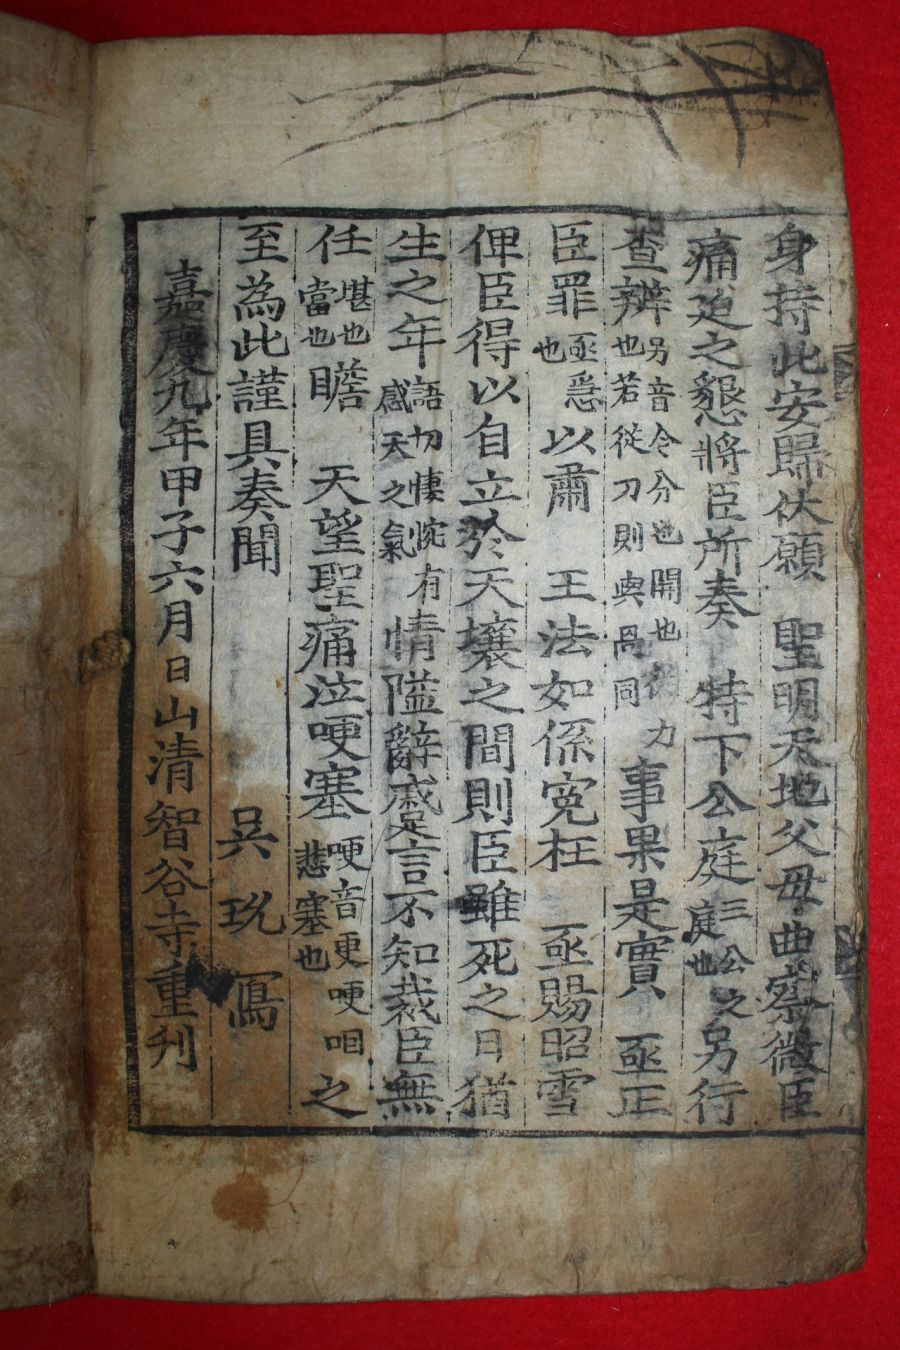 身持此安歸伏願 聖明天地父母曲察微臣
痛迫之懇將臣所奏 特下公庭三公之庭也另行
查辨另音令分也開也從力也若從刀則與另同事果是實 亟正
臣罪亟急也以肅 王法如係寃枉 亟賜昭雪
俾臣得以自立於天壤之間則臣雖死之日猶
生之年語切悽惋有感天之氣情隘辭蹙言不知裁臣無
任堪也當也瞻 天望聖痛泣哽塞哽音更哽咽悲塞也之
至為此謹具奏聞 吳玧寫
嘉慶九年甲子六月日山清智谷寺重刊